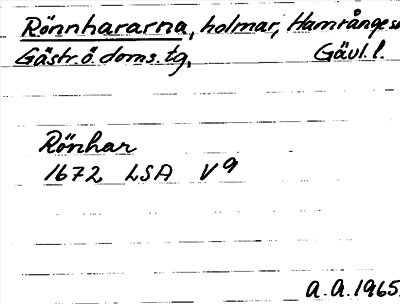 Rönnhararna, holmar, Hamrånge sn
Gästr. ö. doms. tg, Gävl. l.
Rönhar
1672 LSA V9
A.A. 1965